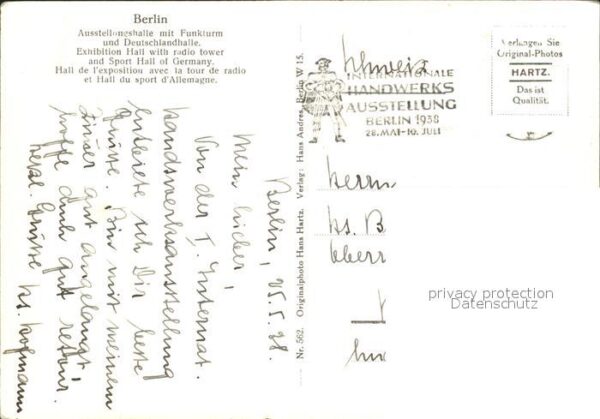 Berlin
Ausstellungshalle mit Funkturm
und Deutschlandhalle.
Exhibition Hall with radio tower
and Sport Hall of Germany.
Hall de l'exposition avec la tour de radio
et Hall du sport d'Allemagne.
Berlin, 25.5.38.
Mein lieber,
Von der I. Internat.
Handwerksausstellung
entbiete ich Dir beste
Grüsse. Bin mit meinem
gut angelangt
hoffe auch gut retour.
herzl. Grüsse Hs. Hofmann
Nr. 562. Originalphoto Hans Hartz. Verlag: Hans Andres, Berlin W 15.
Schweiz
INTERNATIONALE
HANDWERKS
AUSSTELLUNG
BERLIN 1938
28. MAI-10. JULI
Verlangen Sie
Original-Photos
HARTZ.
Das ist
Qualität.
Herrn
Hs. B
privacy protection
Datenschutz